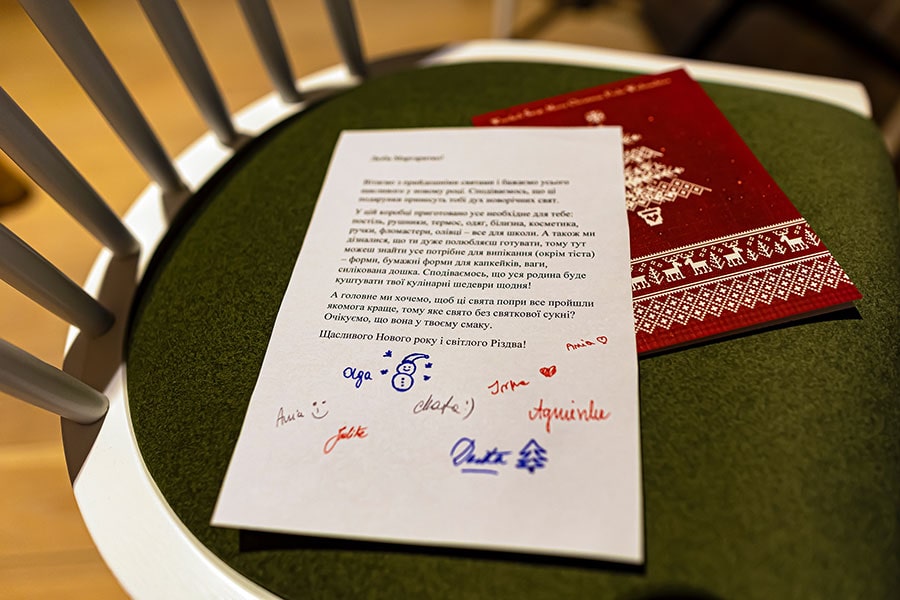 Люба Маргаритко!
Вітаємо з прийдешніми святами і бажаємо усього
щасливого у новому році. Сподіваємось, що ці
подарунки принесуть тобі дух новорічних свят.
У цій коробці приготовано усе необхідне для тебе:
постіль, рушники, термос, одяг, білизна, косметика,
ручки, фломастери, олівці – все для школи. А також ми
дізналися, що ти дуже полюбляєш готувати, тому тут
можеш знайти усе потрібне для випікання (окрім тіста)
– форми, бумажні форми для капкейків, ваги,
силікована дошка. Сподіваємось, що уся родина буде
куштувати твої кулінарні шедеври щодня!
А головне ми хочемо, щоб ці свята попри все пройшли
якомога краще, тому яке свято без святкової сукні?
Очікуємо, що вона у твоєму смаку.
Щасливого Нового року і світлого Різдва!
Ania
Olga
Irma
Ania
Julita
:)
Agnieszka